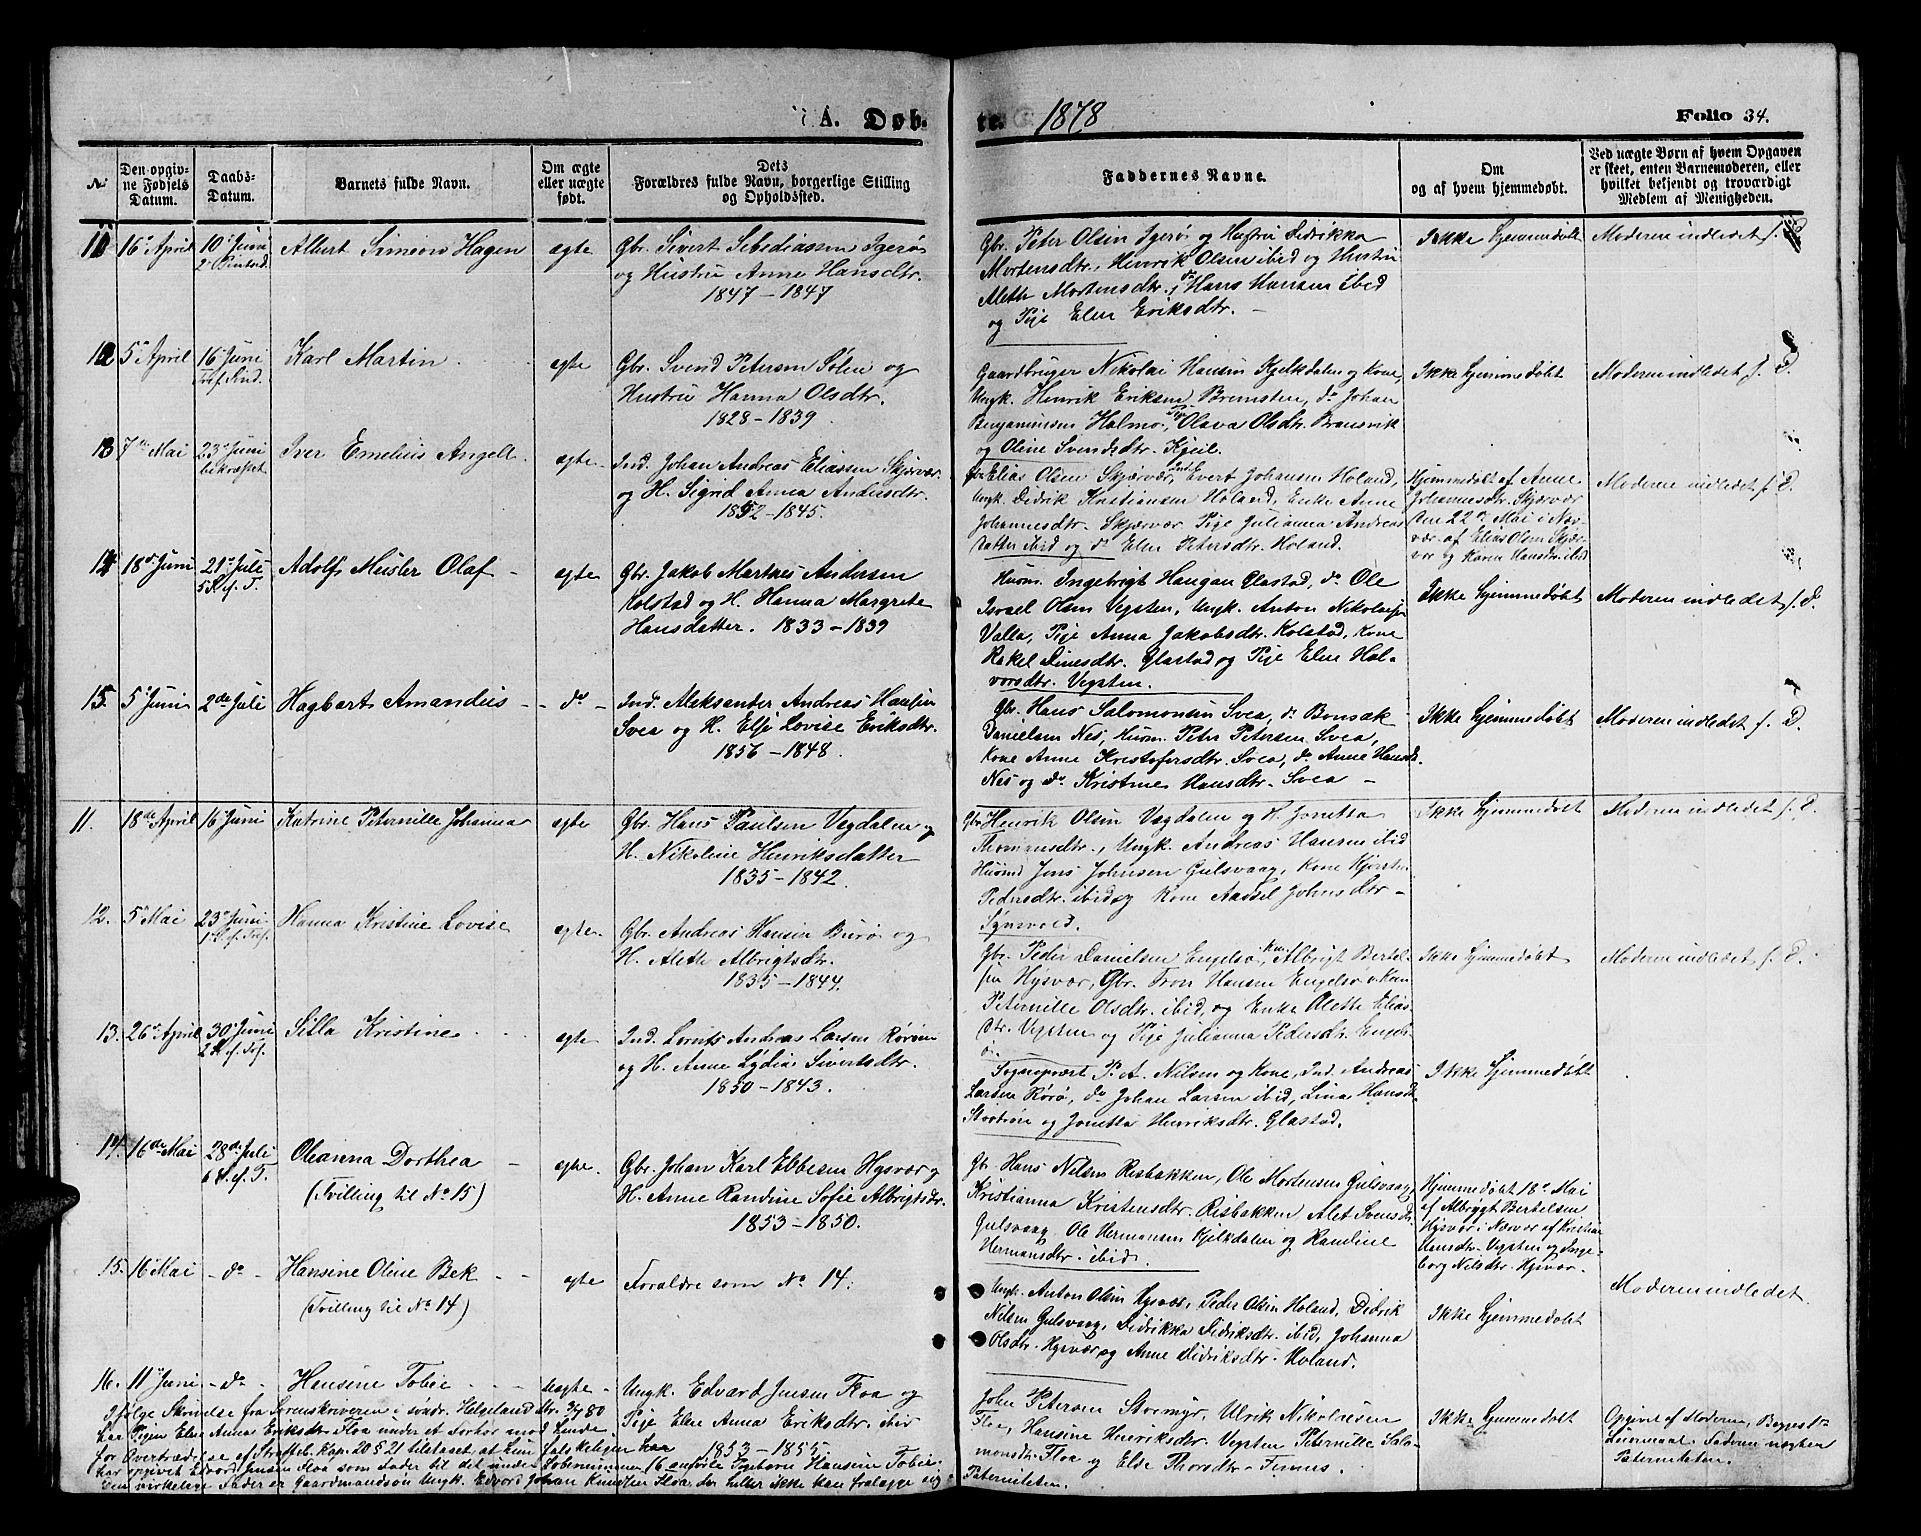 A. Døb-
te. 1878
Folio 34.
№
Den opgiv-
ne Fødsels
Datum.
Daabs-
Datum.
Barnets fulde Navn.
Om ægte
eller uægte
født.
Dets
Forældres fulde Navn, borgerlige Stilling
og Opholdssted.
Faddernes Navne.
Om
og af hvem hjemmedøbt.
Ved uægte Børn af hvem Opgaven
er skeet, enten Barnemoderen, eller
hvilket bekjendt og troværdigt
Medlem af Menigheden.
11 16de April
10de Juni
2. Pintsed.
Albert Simeon Hagen
ægte
Gbr. Sivert Sebediassen Igerø
og Hustru Anne Hansdtr.
1847 – 1847
Gbr. Peter Olsen Igerø og Hustru Didrikka
Mortensdtr., Henrik Olsen ibid og Hustru
Aleth Mortensdtr., do Hans Hansen ibid
og Pige Elen Eriksdtr. –
Ikke hjemmedøbt
Moderen indledet f. D.
12 5te April
16 Juni
Tref. Sind.
Karl Martin
ægte
Gbr. Svend Petersen Solen og
Hustru Hanna Olsdtr.
1828 – 1839
Gaardbruger Nikolai Hansen Kjelkdalen og Kone,
Ungk. Henrik Eriksen Bremsten, do Johan
Benjaminsen Halmø, Pige Olava Olsdtr. Bransvik
og Oline Svendsdtr. Kjeil.
Ikke hjemmedøbt
Moderen indledet f. D.
13 7de Mai
23de Juni
bekræftet
Iver Emelius Angell
ægte
Ind. Johan Andreas Eliassen Skjærvær
og H. Sigrid Anna Andersdtr.
1852 – 1845
Gbr. Elias Olsen Skjærvær, Ind. Evert Johansen Holand,
Ungk. Didrik Kristiansen Holand, Enke Anne
Johannesdtr. Skjærvær, Pige Julianna Andreas
datter ibid og do Elen Petersdtr. Holand.
Hjemmedøbt af Anne
Johannesdtr. Skjærvær
den 22de Mai i Nær-
vær af Elias Olsen Skjær-
vær og Karen Hansdtr. ibid
Moderen indledet f. D.
14 18de Juni
21de Juli
5 S. ef. T.
Adolf Meisler Olaf –
ægte
Gbr. Jakob Martnes Andersen
Kolstad og H. Hanna Margrete
Hansdatter. 1833 – 1839
Huum. Ingebrigt Haugan Glastad, do Ole
Israel Olsen Vegsten, Ungk. Anton Nikolaisen
Valla, Pige Anna Jakobsdtr. Kolstad, Kone
Rakel Dinesdtr. Glastad og Pige Elen Hal-
vorsdtr. Vegsten.
Ikke hjemmedøbt
Moderen indledet f. D.
15. 5te Juni
2de Juli
Hagbart Amandus –
– do –
Ind. Aleksander Andreas Hansen
Svea og H. Else Lovise Eriksdtr.
1856 – 1848.
Gbr. Hans Salomonsen Svea, do Bonsak
Danielsen Nes, Huum. Peter Petersen Svea,
Kone Anne Kristofersdtr. Svea, do Anne Hansdtr.
Nes og do Kristine Hansdtr. Svea –
Ikke hjemmedøbt
Moderen indledet f. D.
11. 18de April
16 Juni
Katrine Peternille Johanna
ægte
Gbr. Hans Paulsen Vegdalen og
H. Nikoline Henriksdatter
1835 – 1842.
Gbr. Henrik Olsen Vegdalen og H. Jonetta
Thomasdtr., Ungk. Andreas Hansen ibid
Huumd Jens Johnsen Gulsvaag, Kone Kjersten
Pedersdtr. ibid og Kone Aassel Johnsdtr –
Ikke hjemmedøbt
Moderen indledet f. D.
12. 5te Mai
23de Juni
1 S. ef. Tref.
Hanna Kristine Lovise
ægte.
Gbr. Andreas Hansen Burø og
H. Aleth Albrigtsdtr.
1835 – 1844.
Gbr. Peder Danielsen Engelsø, Albrigt Bertel-
sen Hysvær, Gbr. Tron Hansen Engelsø o. Kone
Peternille Olsdtr. ibid, og Enke Olette Elias-
dtr. Vegsten og Pige Julianna Pedersdtr. Engels-
ø.
Ikke hjemmedøbt
Moderen indledet f. D.
13. 26de April
30de Juni
2 S. ef. Tref.
Silla Kristine
ægte
Ind. Lornts Andreas Larsen Rørøen
og H. Anne Lydia Sivertsdtr.
1850 – 1843.
Sogneprest P. A. Nilsen og Kone, Ind. Andreas
Larsen Rørø, do Johan Larsen ibid, Lina Hansdtr.
og Jonetta Henriksdtr. Glastad.
Ikke hjemmedøbt
14. 16de Mai
28de Juli
6 S. ef. T.
Oleanna Dorthea –
(Tvilling til No 15)
ægte.
Gbr. Johan Karl Ebbesen Hysvær og
H. Anne Randine Sofie Albrigtsdtr.
1853 – 1850.
Gbr Hans Nilsen Risbakken, Ole Mortensen Gulsvaag,
Kristianna Kristensdtr. Risbakken, Alet Svensdtr
Gulsvaag Ole Hermansen Kjelkdalen og Ramline
Hermansdtr. ibid.
Hjemmedøbt 18de Mai
af Albrygt Bertelsen
Hysvær i Nærvær af Kristian
Hansdtr. Vegsten og Inge-
borg Nilsdtr. Hysvær.
15. 16 Mai
– do –
Hansine Oline Bek
(Tvilling til No 14)
ægte
Forældre som No 14.
Ungk. Anton Olsen Hysvær, Peder Olsen Holand, Didrik
Nilsen Gulsvaag, Didrikka Didriksdtr. ibid, Johanna
Olsdtr. Hysvær og Anne Didriksdtr. Holand.
Ikke hjemmedøbt
Moderen indledet.
16. 11te Juni
– do –
Hansine Tobie
Uægte
Ungk. Edvard Jensen Floa og
Pige Elen Anna Eriksdtr.
1853 – 1855.
John Petersen Stormyr, Ulrik Nikolaisen
Floa, Hansine Henriksdtr. Vegsten Peternille Salo-
monsdtr. Floa og Elde Thorsdtr.
Ikke hjemmedøbt
Opgivet af Moderen,
Faderen nægter
Paterniteten.
Ifølge Skrivelse fra Sorenskriveren i søndr. Helgeland
har Pigen Elen Anna Eriksdtr. Floa under et Forhør mod hende
for Overtrædelse af Straffel. Kap. 20 § 21 tilstaaet, at hun falskeligen har
har opgivet Edvard Jensen Floa som Fader til det under Løbenummer 16 anførte Pigebarn Hansine Tobie.
Den virkelige Fader er Gaardmandssøn Ungk. Edvard Johan Knudsen Floa, der heller ikke kan fralægge sig
Paterniteten.